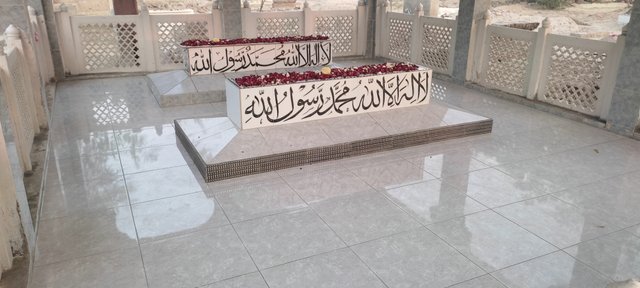 لا اله الا الله محمد رسول الله
لا اله الا الله محمد رسول الله